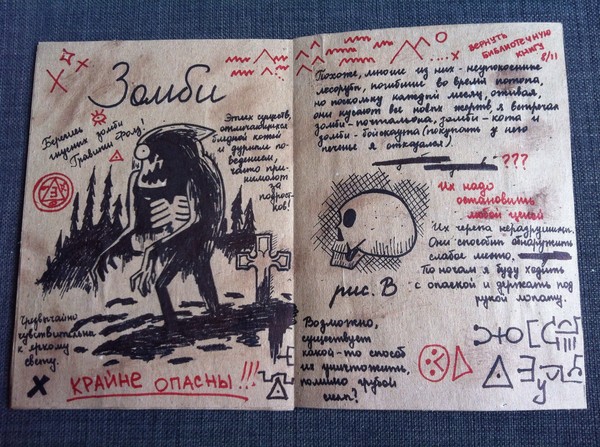 Зомби
Берегись
гнусных зомби
Гравити Фолз!
Этих существ,
отличающихся
бледной кожей
и дурным по-
ведением,
часто при-
нимают
за
подрост-
ков!
Чрезвычайно
чувствительна
к яркому
свету.
КРАЙНЕ ОПАСНЫ!!!
ВЕРНУТЬ
БИБЛИОТЕЧНУЮ
КНИГУ
8/11
Похоже, многие из них - неупокоенные
лесорубы, погибшие во время потопа,
но поскольку каждый месяц, оживая,
они кусают все новых жертв я встречал
зомби-почтальона, зомби-кота и
зомби-бойскаута (покупать у него
печенье я отказался)
???
Их надо
остановить
любой ценой
Их черепа неразрушимы.
Они способны обнаружить
слабое место.
По ночам я буду ходить
с опаской и держать под
рукой лопату.
рис. В
Возможно,
существует
какой-то способ
их уничтожить,
помимо грубой
силы?